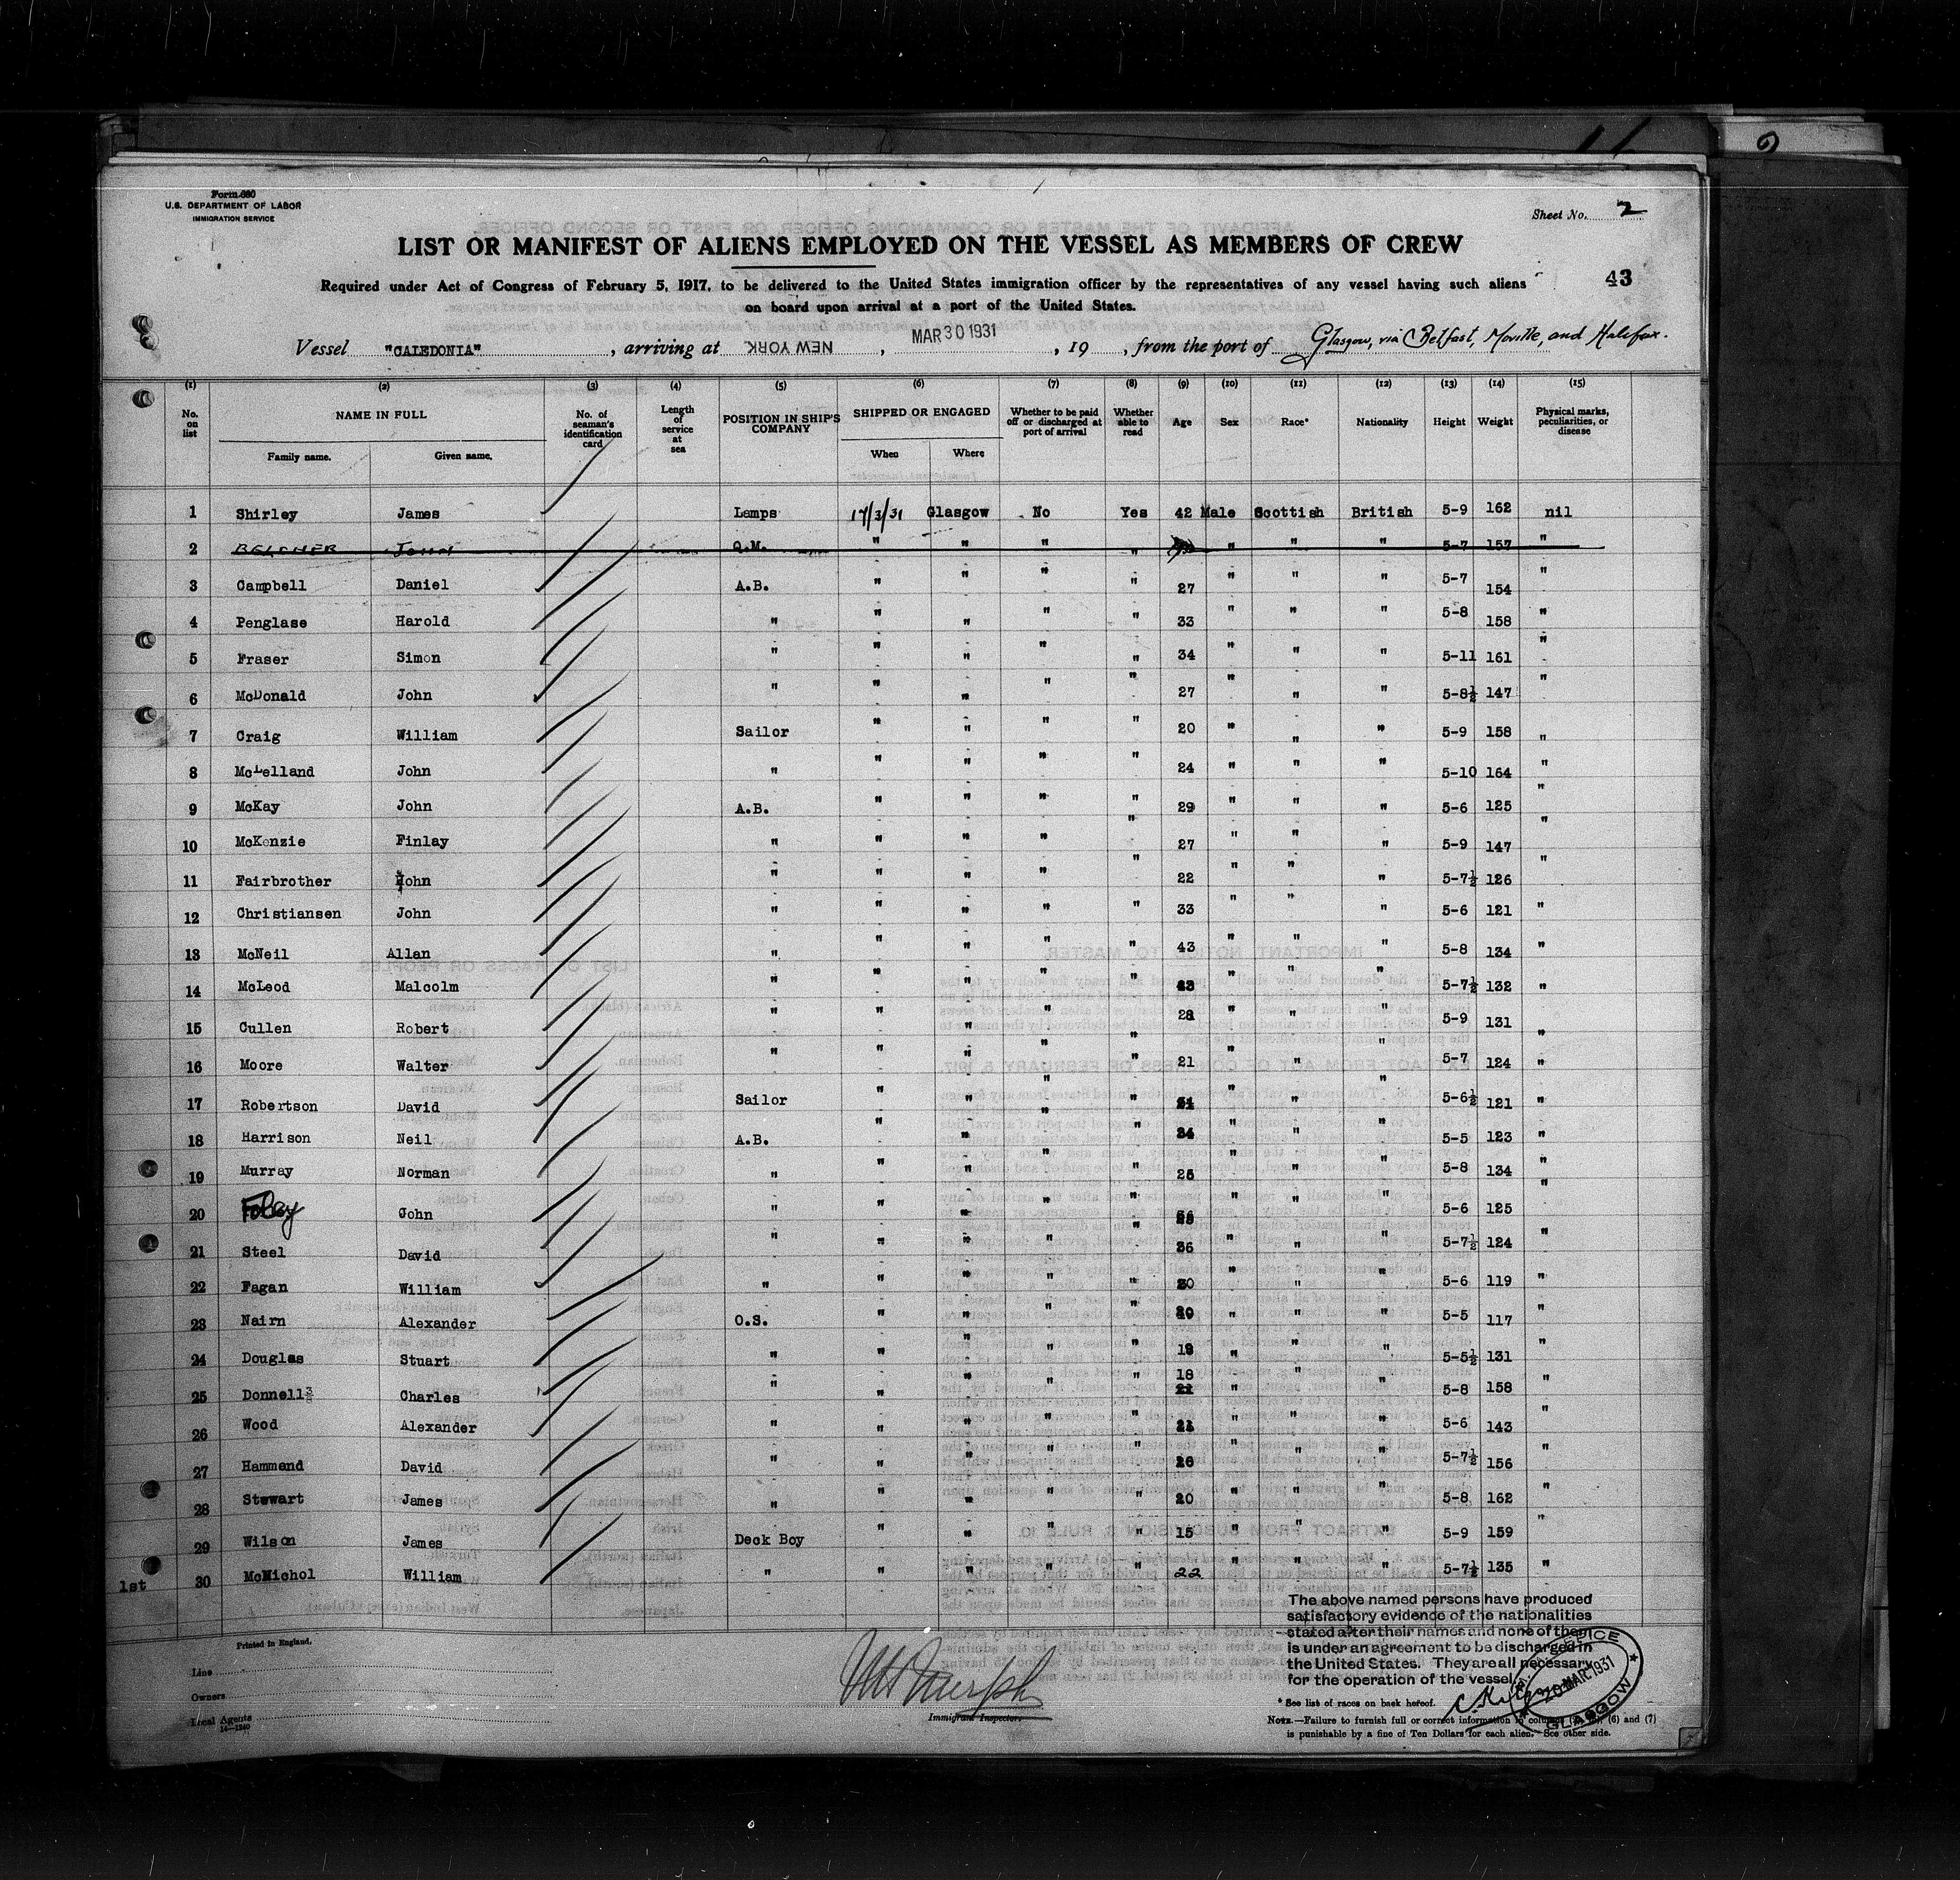 Form 680
U.S. DEPARTMENT OF LABOR
IMMIGRATION SERVICE
Sheet No. 2
LIST OR MANIFEST OF ALIENS EMPLOYED ON THE VESSEL AS MEMBERS OF CREW
43
Required under Act of Congress of February 5, 1917, to be delivered to the United States immigration officer by the representatives of any vessel having such aliens
on board upon arrival at a port of the United States.
Vessel "CALEDONIA", arriving at NEW YORK, MAR 30 1931, 19, from the port of Glasgow, via Belfast, Moville, and Halifax.
(1) (2) (3) (4) (5) (6) (7) (8) (9) (10) (11) (12) (13) (14) (15)
No. on list NAME IN FULL Family name. Given name. No. of seaman's identification card Length of service at sea POSITION IN SHIP'S COMPANY SHIPPED OR ENGAGED When Where Whether to be paid off or discharged at port of arrival Whether able to read Age Sex Race* Nationality Height Weight Physical marks, peculiarities, or disease
1 Shirley James Lamps 17/3/31 Glasgow No Yes 42 Male Scottish British 5-9 162 nil
2 BELCHER John Q.M. " " " " " " " 5-7 157 "
3 Campbell Daniel A.B. " " " " 27 " " " 5-7 154 "
4 Penglase Harold " " " " " 33 " " " 5-8 158 "
5 Fraser Simon " " " " " 34 " " " 5-11 161 "
6 McDonald John " " " " " 27 " " " 5-8½ 147 "
7 Craig William Sailor " " " " 20 " " " 5-9 158 "
8 McLelland John " " " " " 24 " " " 5-10 164 "
9 McKay John A.B. " " " " 29 " " " 5-6 125 "
10 McKenzie Finlay " " " " " 27 " " " 5-9 147 "
11 Fairbrother John " " " " " 22 " " " 5-7½ 126 "
12 Christiansen John " " " " " 33 " " " 5-6 121 "
13 McNeil Allan " " " " " 43 " " " 5-8 134 "
14 McLeod Malcolm " " " " " " " " 5-7½ 132 "
15 Cullen Robert " " " " " 28 " " " 5-9 131 "
16 Moore Walter " " " " " 21 " " " 5-7 124 "
17 Robertson David Sailor " " " " " " " 5-6½ 121 "
18 Harrison Neil A.B. " " " " 34 " " " 5-5 123 "
19 Murray Norman " " " " " 25 " " " 5-8 134 "
20 Foley John " " " " " " " " 5-6 125 "
21 Steel David " " " " " 36 " " " 5-7½ 124 "
22 Fagan William " " " " " " " " 5-6 119 "
23 Nairn Alexander O.S. " " " " " " " 5-5 117 "
24 Douglas Stuart " " " " " " " " 5-5½ 131 "
25 Donnell Charles " " " " " 18 " " " 5-8 158 "
26 Wood Alexander " " " " " 21 " " " 5-6 143 "
27 Hammond David " " " " " " " " 5-7½ 156 "
28 Stewart James " " " " " 20 " " " 5-8 162 "
29 Wilson James Deck Boy " " " " 15 " " " 5-9 159 "
1st 30 McNichol William " " " " " 22 " " " 5-7½ 135 "
The above named persons have produced
satisfactory evidence of the nationalities
stated after their names and none of them
is under an agreement to be discharged in
the United States. They are all necessary
for the operation of the vessel.
20 MAR. 1931
GLASGOW
Printed in England.
Line
Owners
Local Agents
14—1240
Immigrant Inspector.
* See list of races on back hereof.
NOTE.—Failure to furnish full or correct information in columns (6) and (7)
is punishable by a fine of Ten Dollars for each alien. See other side.